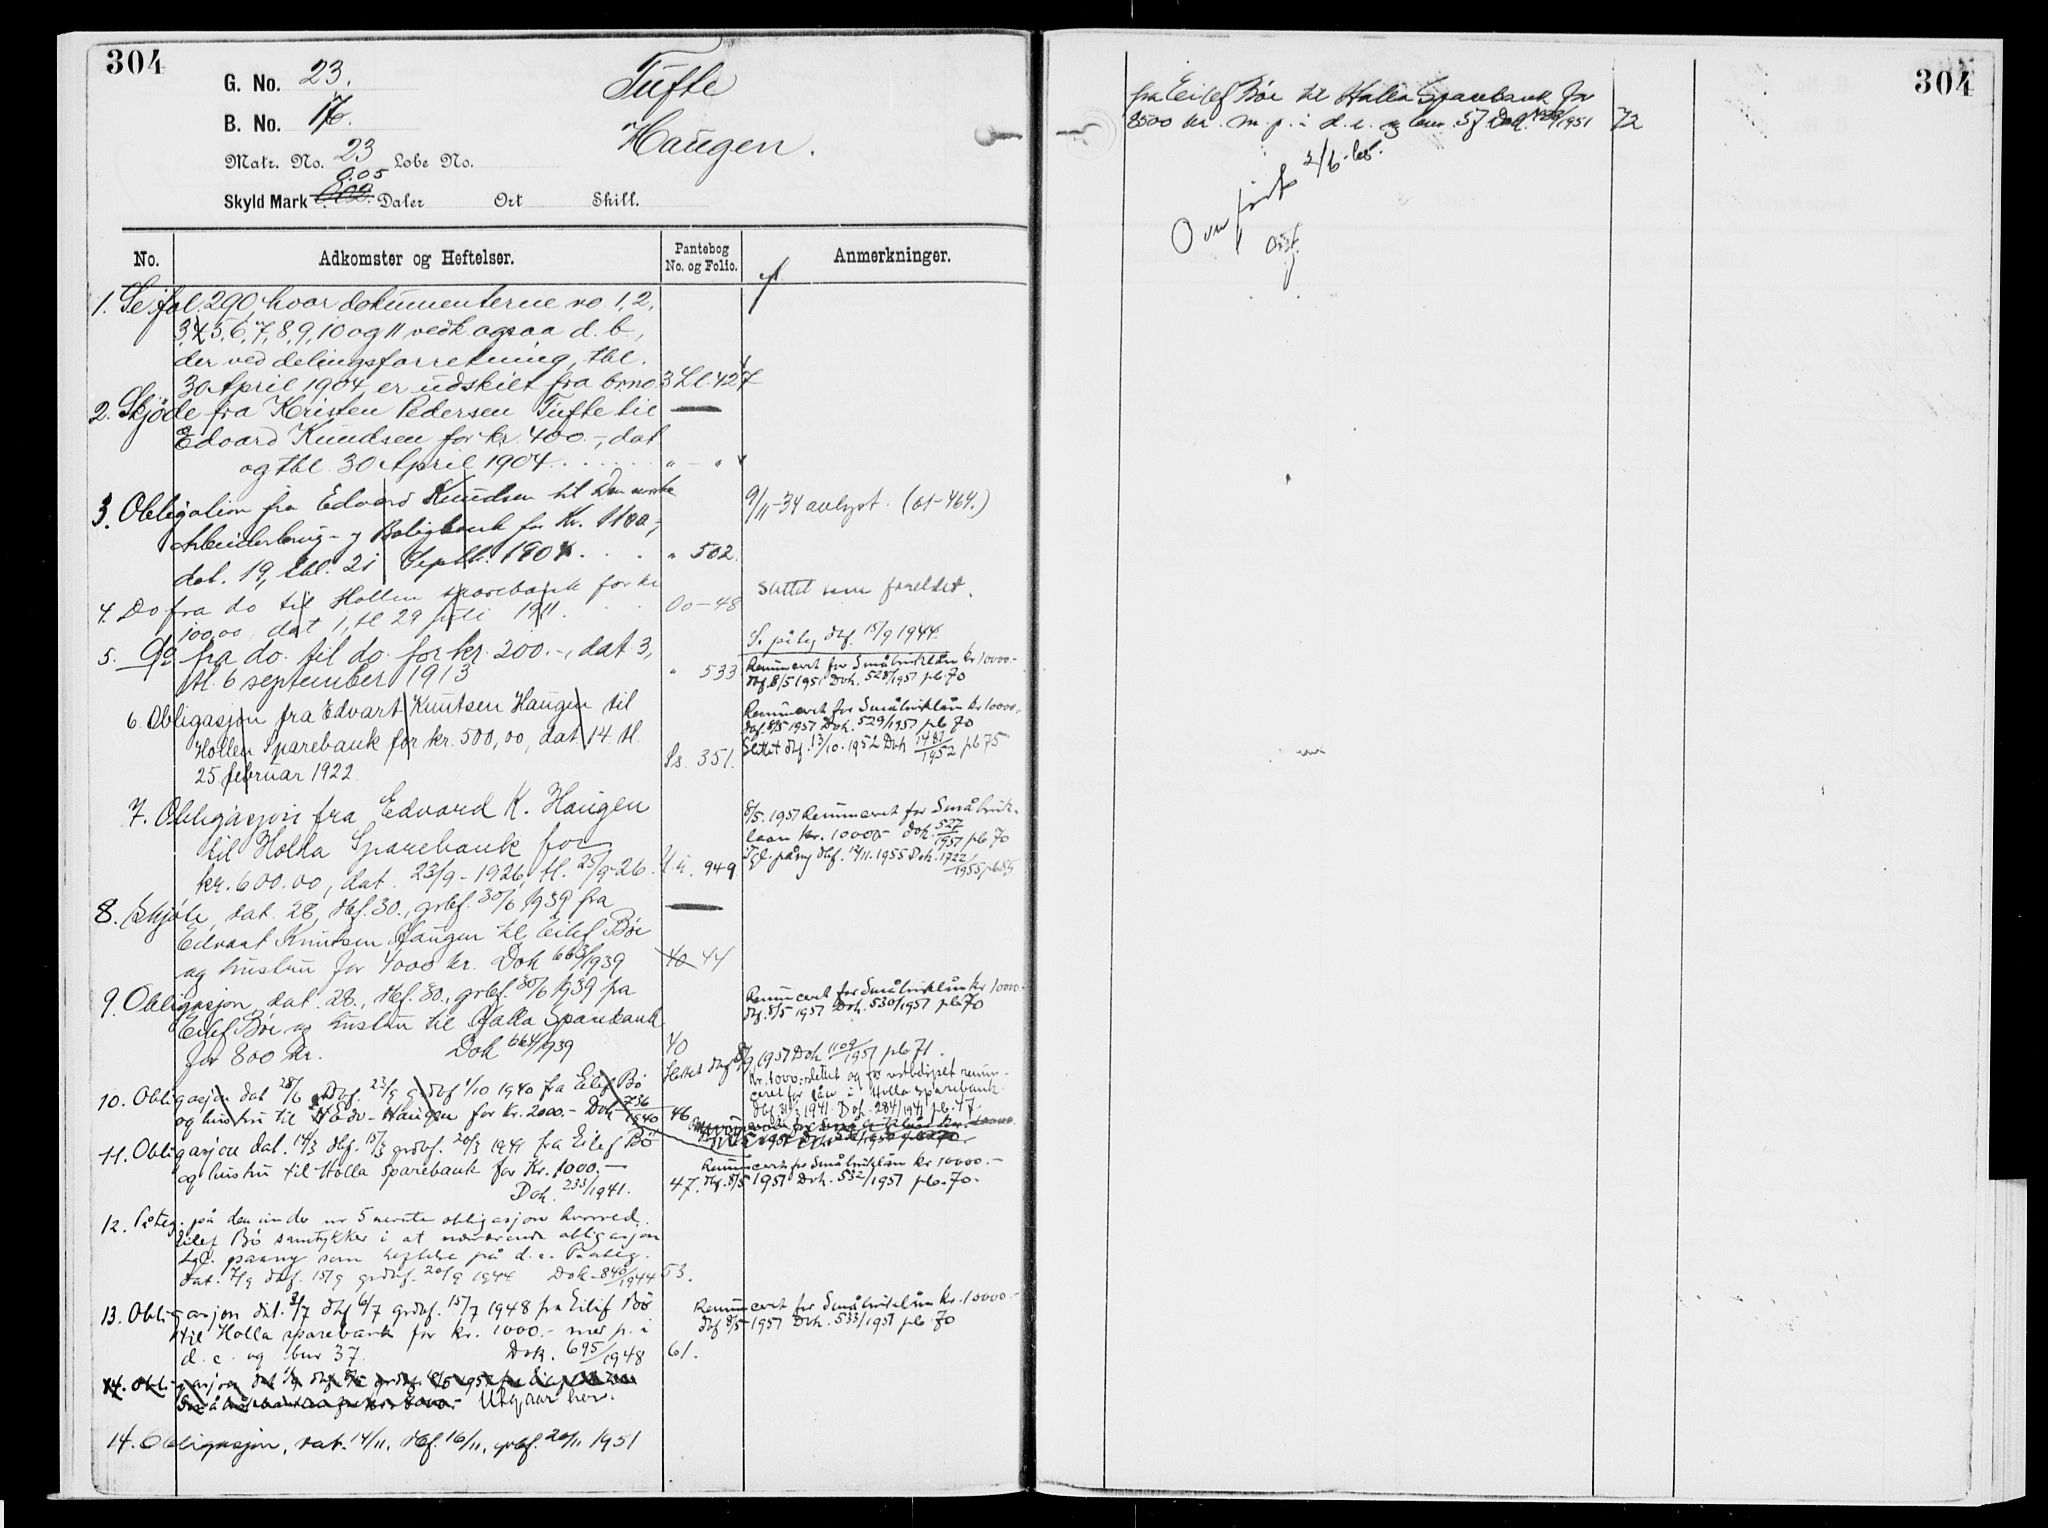 304
G. No. 23.
Tufte
B. No. 16.
Haugen.
Matr. No. 23 Løbe No.
0.05
Skyld Mark Daler Ort Skill.
No. Adkomster og Heftelser. Pantebog No. og Folio. Anmerkninger.
1. Se fol. 290, hvor dokumenterne no 1, 2,
3, 4, 5, 6, 7, 8, 9, 10 og 11 vedk ogsaa d. b.,
der ved delingsforretning, thl.
30 April 1904, er udskilt fra brno. 3 Ll. 427
2. Skjøde fra Kristen Pedersen Tufte til
Edvard Knudsen for kr. 400.-, dat
og thl. 30 April 1904 . . . . . . " - "
3. Obligation fra Edvard Knudsen til Den norske
Arbeiderbrug- og Boligbank for Kr. 1100,-
dat. 19, thl. 21 Septbr. 1904 . . . " 502.
9/11-34 avlyst. (61-464.)
4. Do fra do til Hollen sparebank for kr
100,00, dat 1, tl 29 juli 1911. Oo-48
Slettet som foreldet.
5. Do fra do. til do. for kr. 200.-, dat 3,
tl. 6 september 1913 " 533
S. påteg dbf. 15/9 1944.
Renunceret for Småbruklån kr 10000.-
dbf. 8/5 1951 Dok. 528/1951 pb. 70
6. Obligasjon fra Edvart Knutsen Haugen til
Hollen Sparebank for kr. 500,00, dat 14. tl.
25 februar 1922. Ss. 351.
Renunceret for Småbruklån kr 10000.-
dbf. 8/5 1951 Dok. 529/1951 pb 70
Slettet dbf. 13/10. 1952 Dok 1487/1952 pb 75
7. Obligasjon fra Edvard K. Haugen
til Holla Sparebank for
kr. 600.00, dat. 23/9-1926, tl. 25/9-26. 949
8/5. 1951 Renunceret for Småbruk-
laan kr. 10000.- Dok. 527/1951 pb 70
Tgl. påny dbf. 12/11. 1955 Dok. 1722/1955 pb 85
8. Skjøte, dat. 28, dbf. 30., grbf. 30/6 1939 fra
Edvart Knutsen Haugen til Eilef Bøe
og hustru for 4000 kr. Dok 663/1939 40 44
9. Obligasjon, dat. 28., dbf. 30., grbf. 30/6 1939 fra
Eilef Bøe og hustru til Holla Sparebank
for 800 kr. Dok 664/1939 40
Renunceret for Småbruklån kr 10000.-
dbf. 8/5 1951 Dok. 530/1951 pb. 70
Slettet dbf 1951 Dok 1109/1951 pb 71.
10. Obligasjon dat 28/6 dbf. 23/9 grdbf 1/10 1940 fra Eilef Bø
og hustru til Edv. Haugen for kr. 2000.- Dok 736/1940 46
Kr. 1000.- slettet og for utbetalt renun-
ceret for lån i Holla Sparebank.
dbf 31/3 1941. Dok. 284/1941 pb. 47.
11. Obligasjon dat. 14/3 dbf. 15/3 grdbf. 20/3 1941 fra Eilef Bø
og hustru til Holla Sparebank for Kr. 1000.-
Dok. 233/1941. 47.
Renunceret for Småbruklån kr 10000.-
dbf. 8/5 1951 Dok. 532/1951 pb. 70.
12. Påteg. på den under nr 5 nevnte obligasjon hvorved
Eilef Bø samtykker i at nærværende obligasjon
tgl. paany som heftelse på d. e. Påteg.
dat. 7/9 dbf. 15/9 grdbf. 20/9 1944 Dok. 840/1944 53.
13. Obligasjon dat. 3/7 dbf 6/7 grdbf. 15/7 1948 fra Eilif Bø
til Holla sparebank for kr. 1000.- med p. i
d. e. og bnr 37. Dok. 695/1948 61.
Renunceret for Småbruklån kr. 10000.-
dbf 8/5 1951 Dok. 533/1951 pb. 70
Utgaar her.
14. Obligasjon, dat. 14/11, dbf. 16/11, grbf. 20/11 1951
304
fra Eilef Bøe til Holla Sparebank for
8500 kr. m. p. i d. e. og bnr. 57 Dok. 1951 72
Overført 2/6-65.